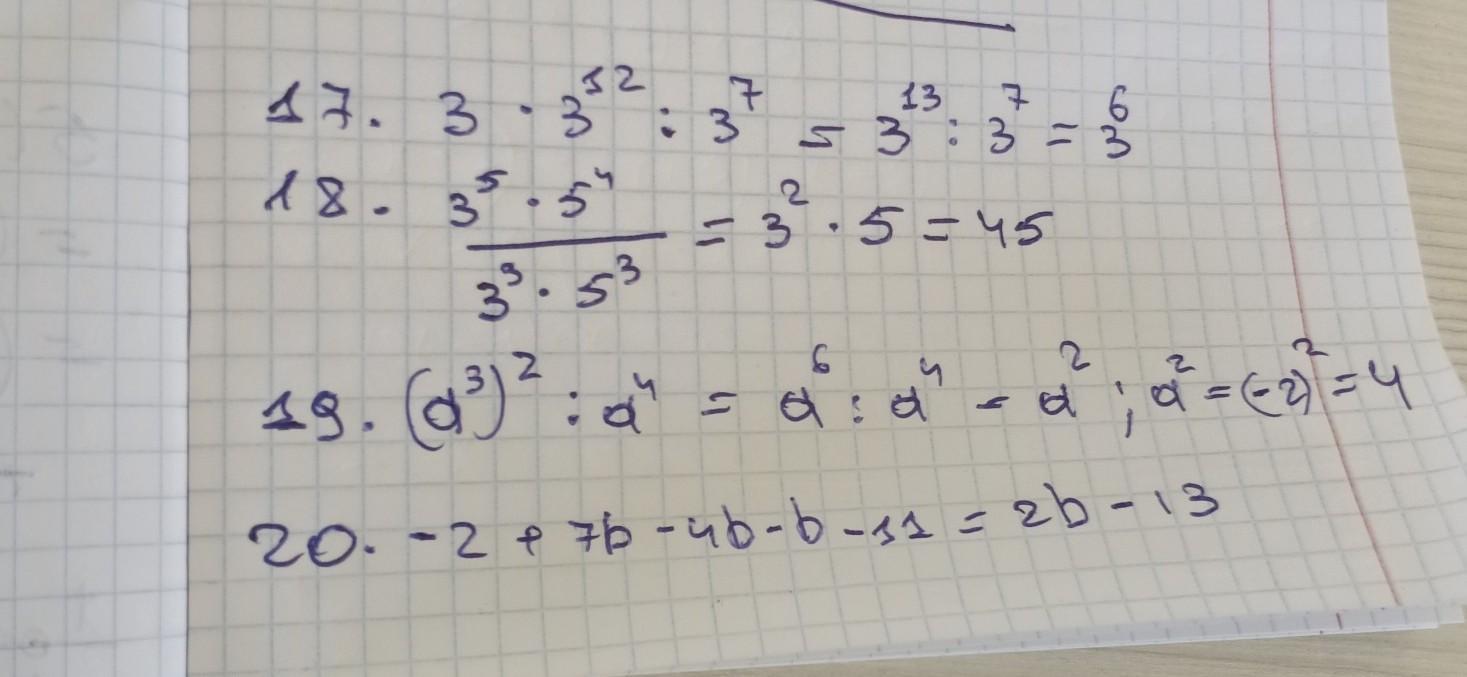 17. 3 · 3^12 : 3^7 = 3^13 : 3^7 = 3^6
18. (3^5 · 5^4) / (3^3 · 5^3) = 3^2 · 5 = 45
19. (a^3)^2 : a^4 = a^6 : a^4 = a^2 ; a^2 = (-2)^2 = 4
20. -2 + 7b - 4b - b - 11 = 2b - 13